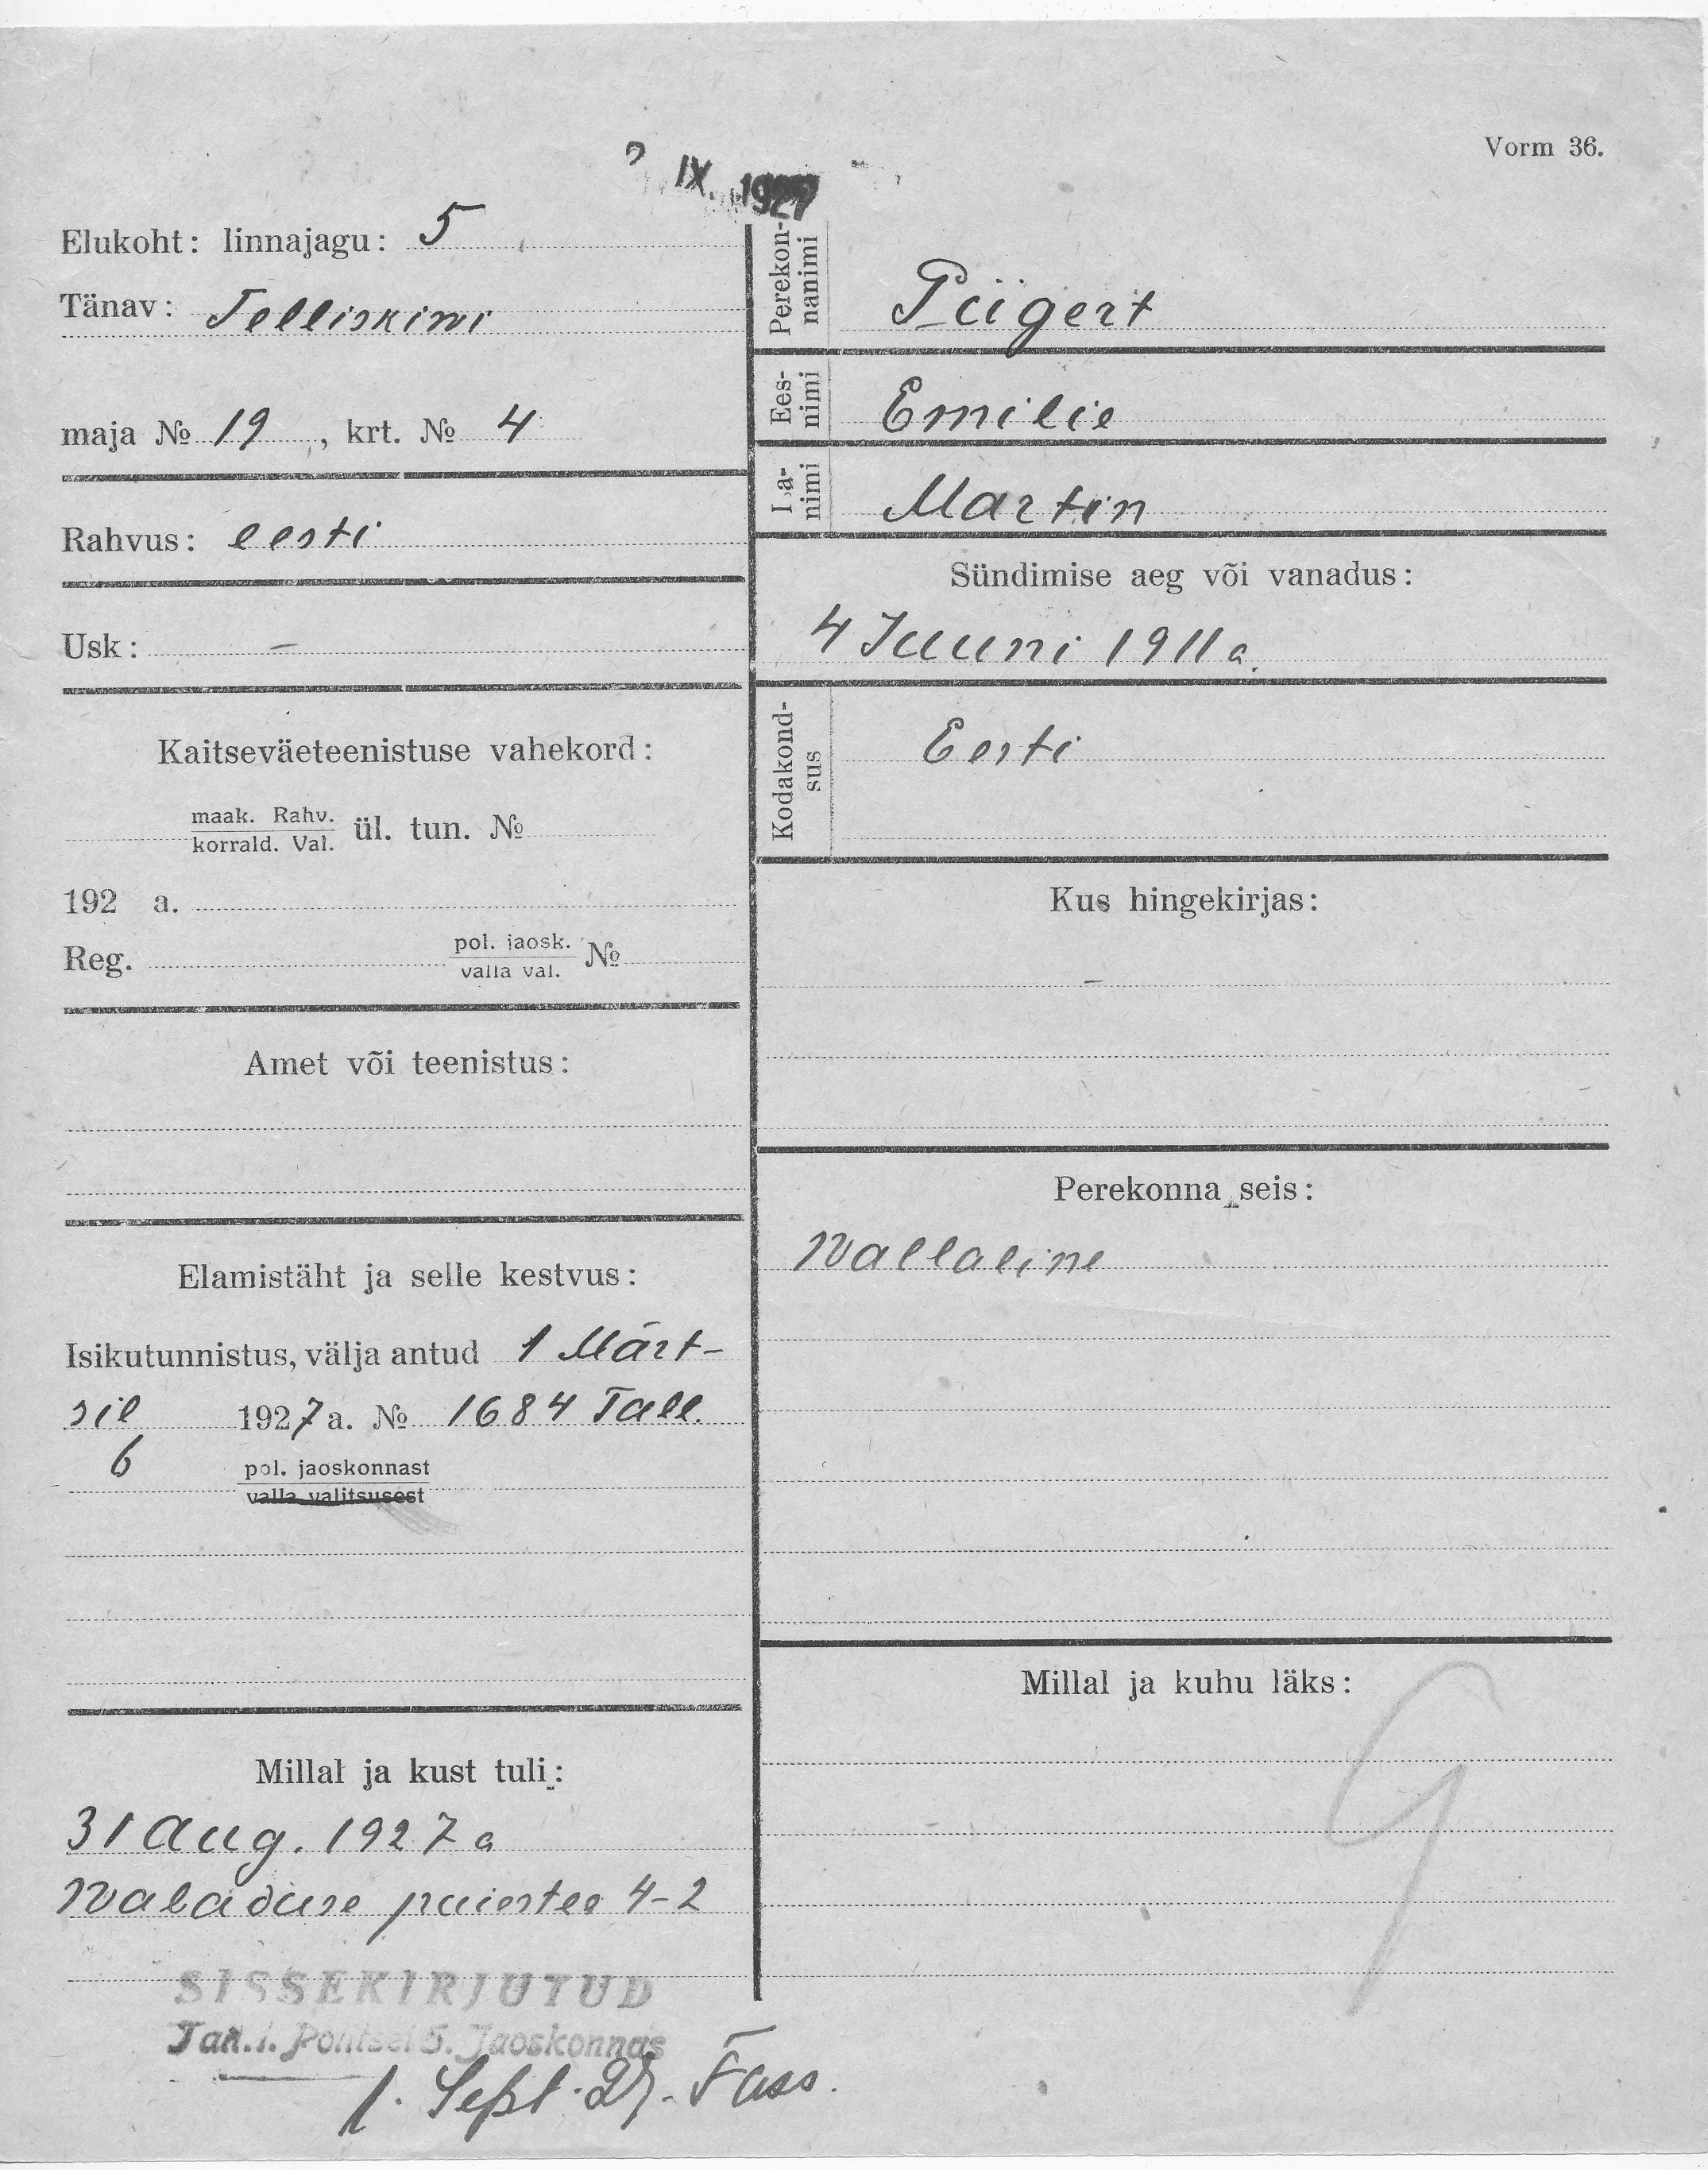 Vorm 36.
IX. 1927
Elukoht: linnajagu: 5
Tänav: Telliskivi
maja № 19, krt. № 4
Rahvus: eesti
Usk: –
Kaitseväeteenistuse vahekord:
maak. Rahv.
korrald. Val.
ül. tun. №
192 a.
Reg. pol. jaosk. №
valla val.
Amet või teenistus:
Elamistäht ja selle kestvus:
Isikutunnistus, välja antud 1 Märt-
sil 1927 a. № 1684 Tall.
6 pol. jaoskonnast
valla valitsusest
Millal ja kust tuli:
31 Aug. 1927 a
Vabaduse puiestee 4-2
SISSEKIRJUTUD
Tall. Politsei 5. Jaoskonnas
1. Sept. 27. Tass.
Perekon-
nanimi
Püigert
Ees-
nimi
Emilie
Isa-
nimi
Martin
Sündimise aeg või vanadus:
4 Juuni 1911 a.
Kodakond-
sus
Eesti
Kus hingekirjas:
–
Perekonna seis:
Vallaline
Millal ja kuhu läks: